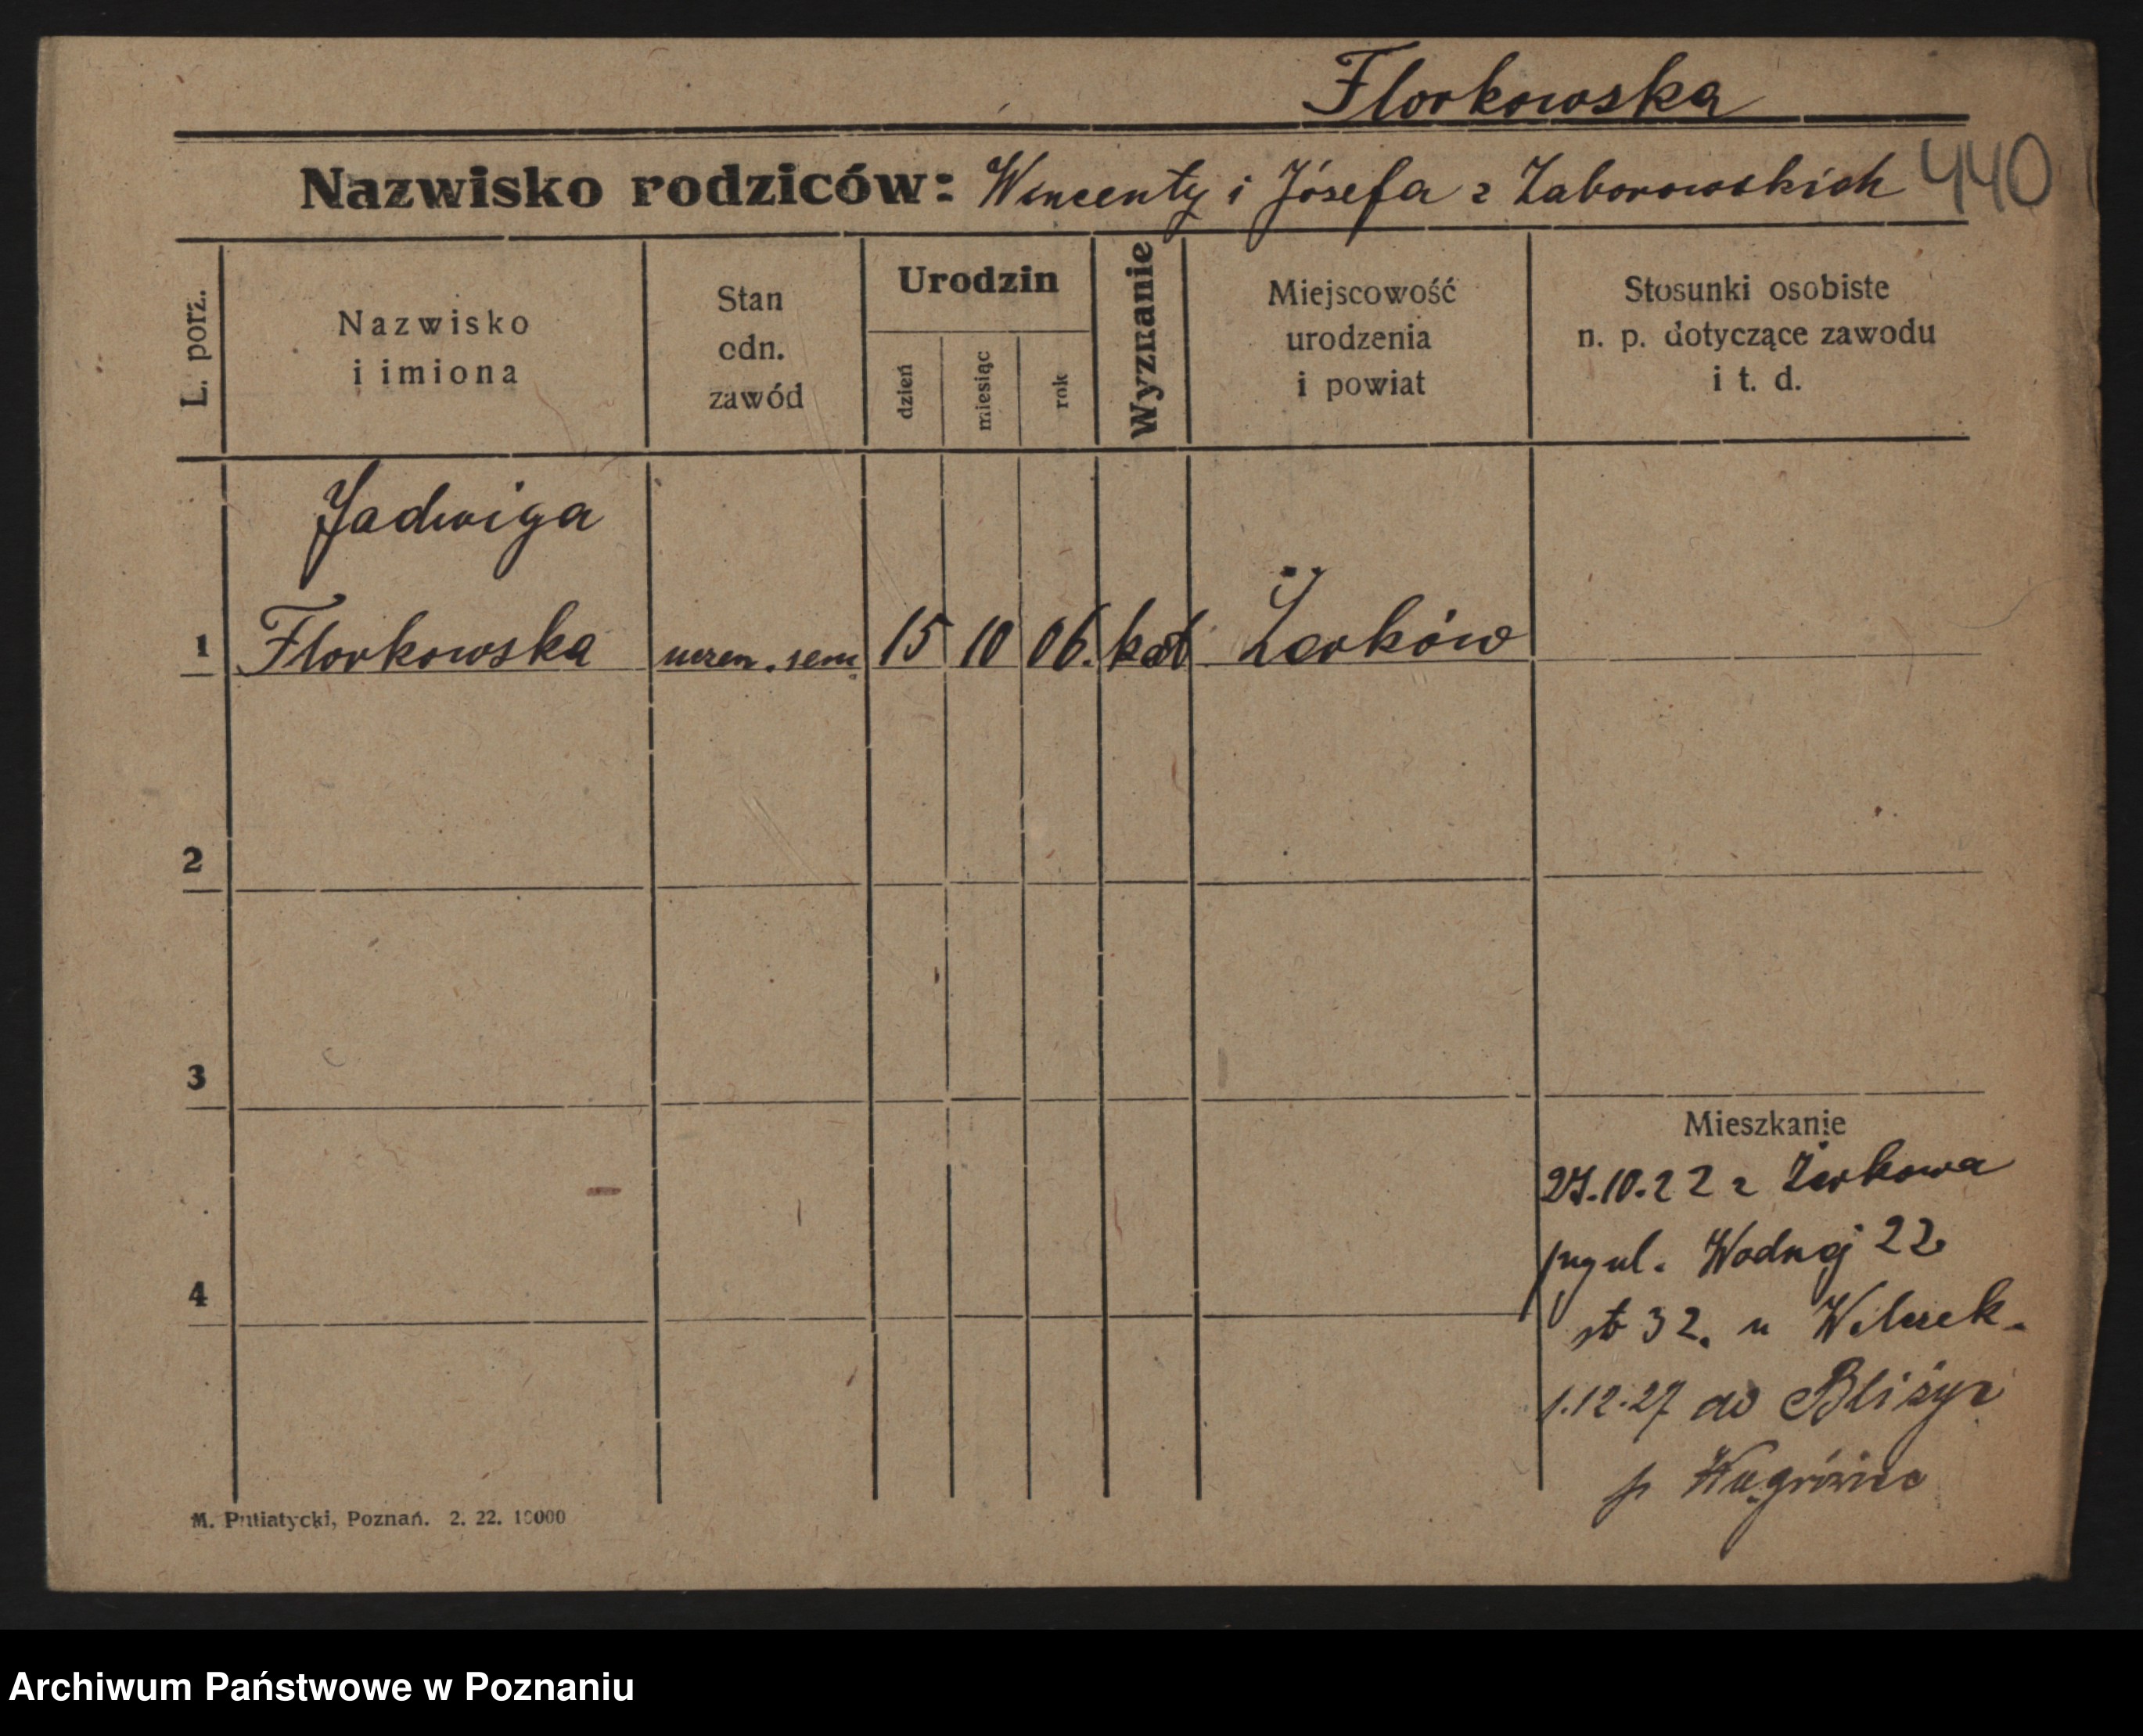 Florkowska
Nazwisko rodziców: Wincenty i Józefa z Zaborowskich 440
L. porz.
Nazwisko
i imiona
Stan
odn.
zawód
Urodzin
dzień
miesiąc
rok
Wyznanie
Miejscowość
urodzenia
i powiat
Stosunki osobiste
n. p. dotyczące zawodu
i t. d.
Jadwiga
1 Florkowska uczen. sem. 15 10 06. kat Żerków
2
3
Mieszkanie
27.10.22 z Żerkowa
przy ul. Wodnej 22
4
32. u
1.12.27 do Bliżyc
p
M. Putiatycki, Poznań. 2. 22. 10000
Archiwum Państwowe w Poznaniu